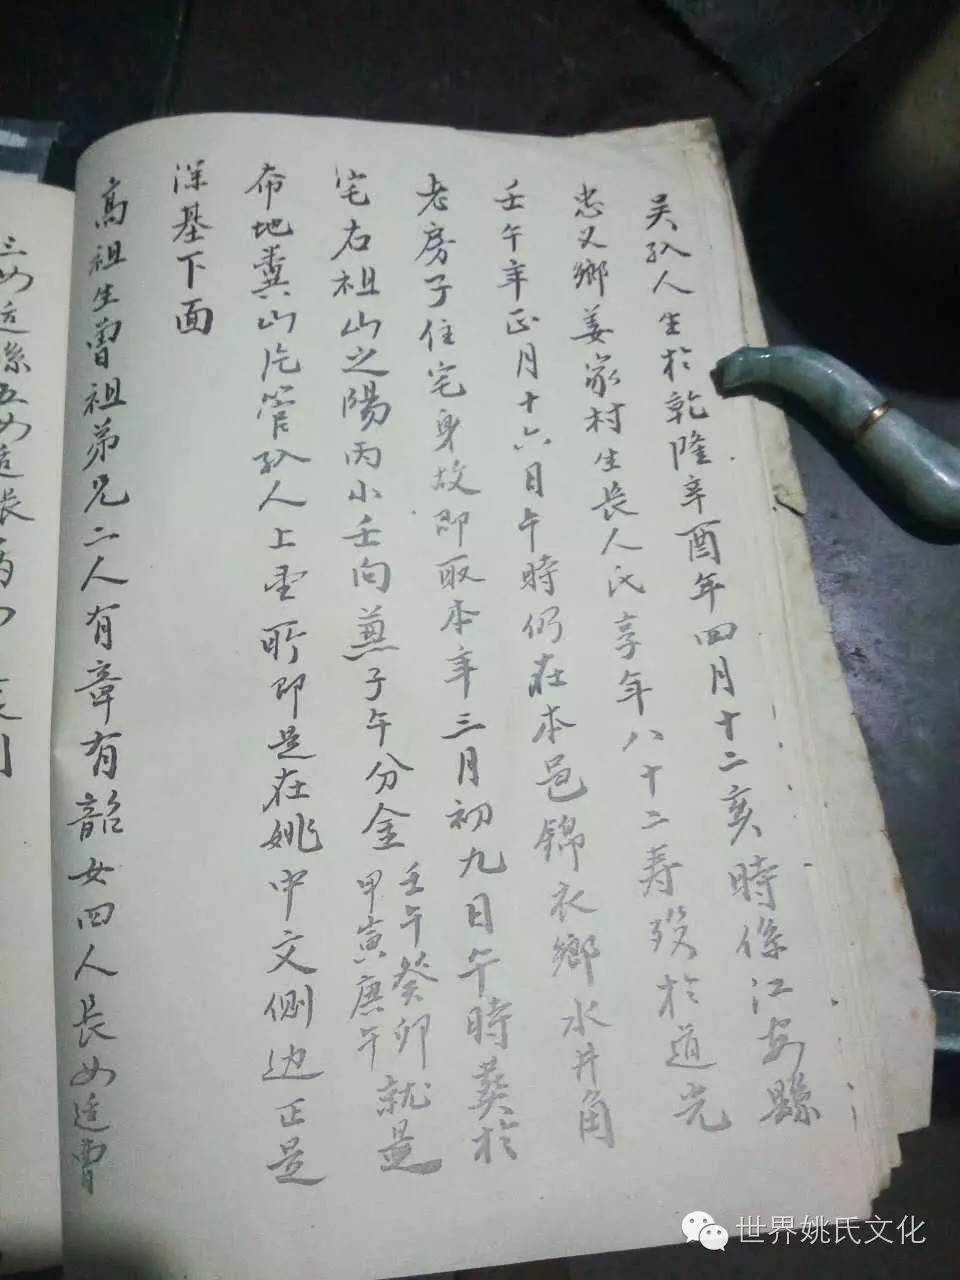 吴孺人生於乾隆辛酉年四月十二亥時係江安縣
忠义鄉姜家村生長人氏享年八十二寿殁於道光
壬午年正月十六日午時仍在本邑锦衣鄉水井角
老房子住宅身故即取本年三月初九日午時葬於
宅右祖山之陽丙小壬向兼子午分金
壬午癸卯就是
甲寅庚午
布地糞山凭管孺人上 所即是在姚中文侧边正是
深基下面
高祖生曾祖弟兄二人有章有韶女四人長女适曹
三女适 五女适長
世界姚氏文化